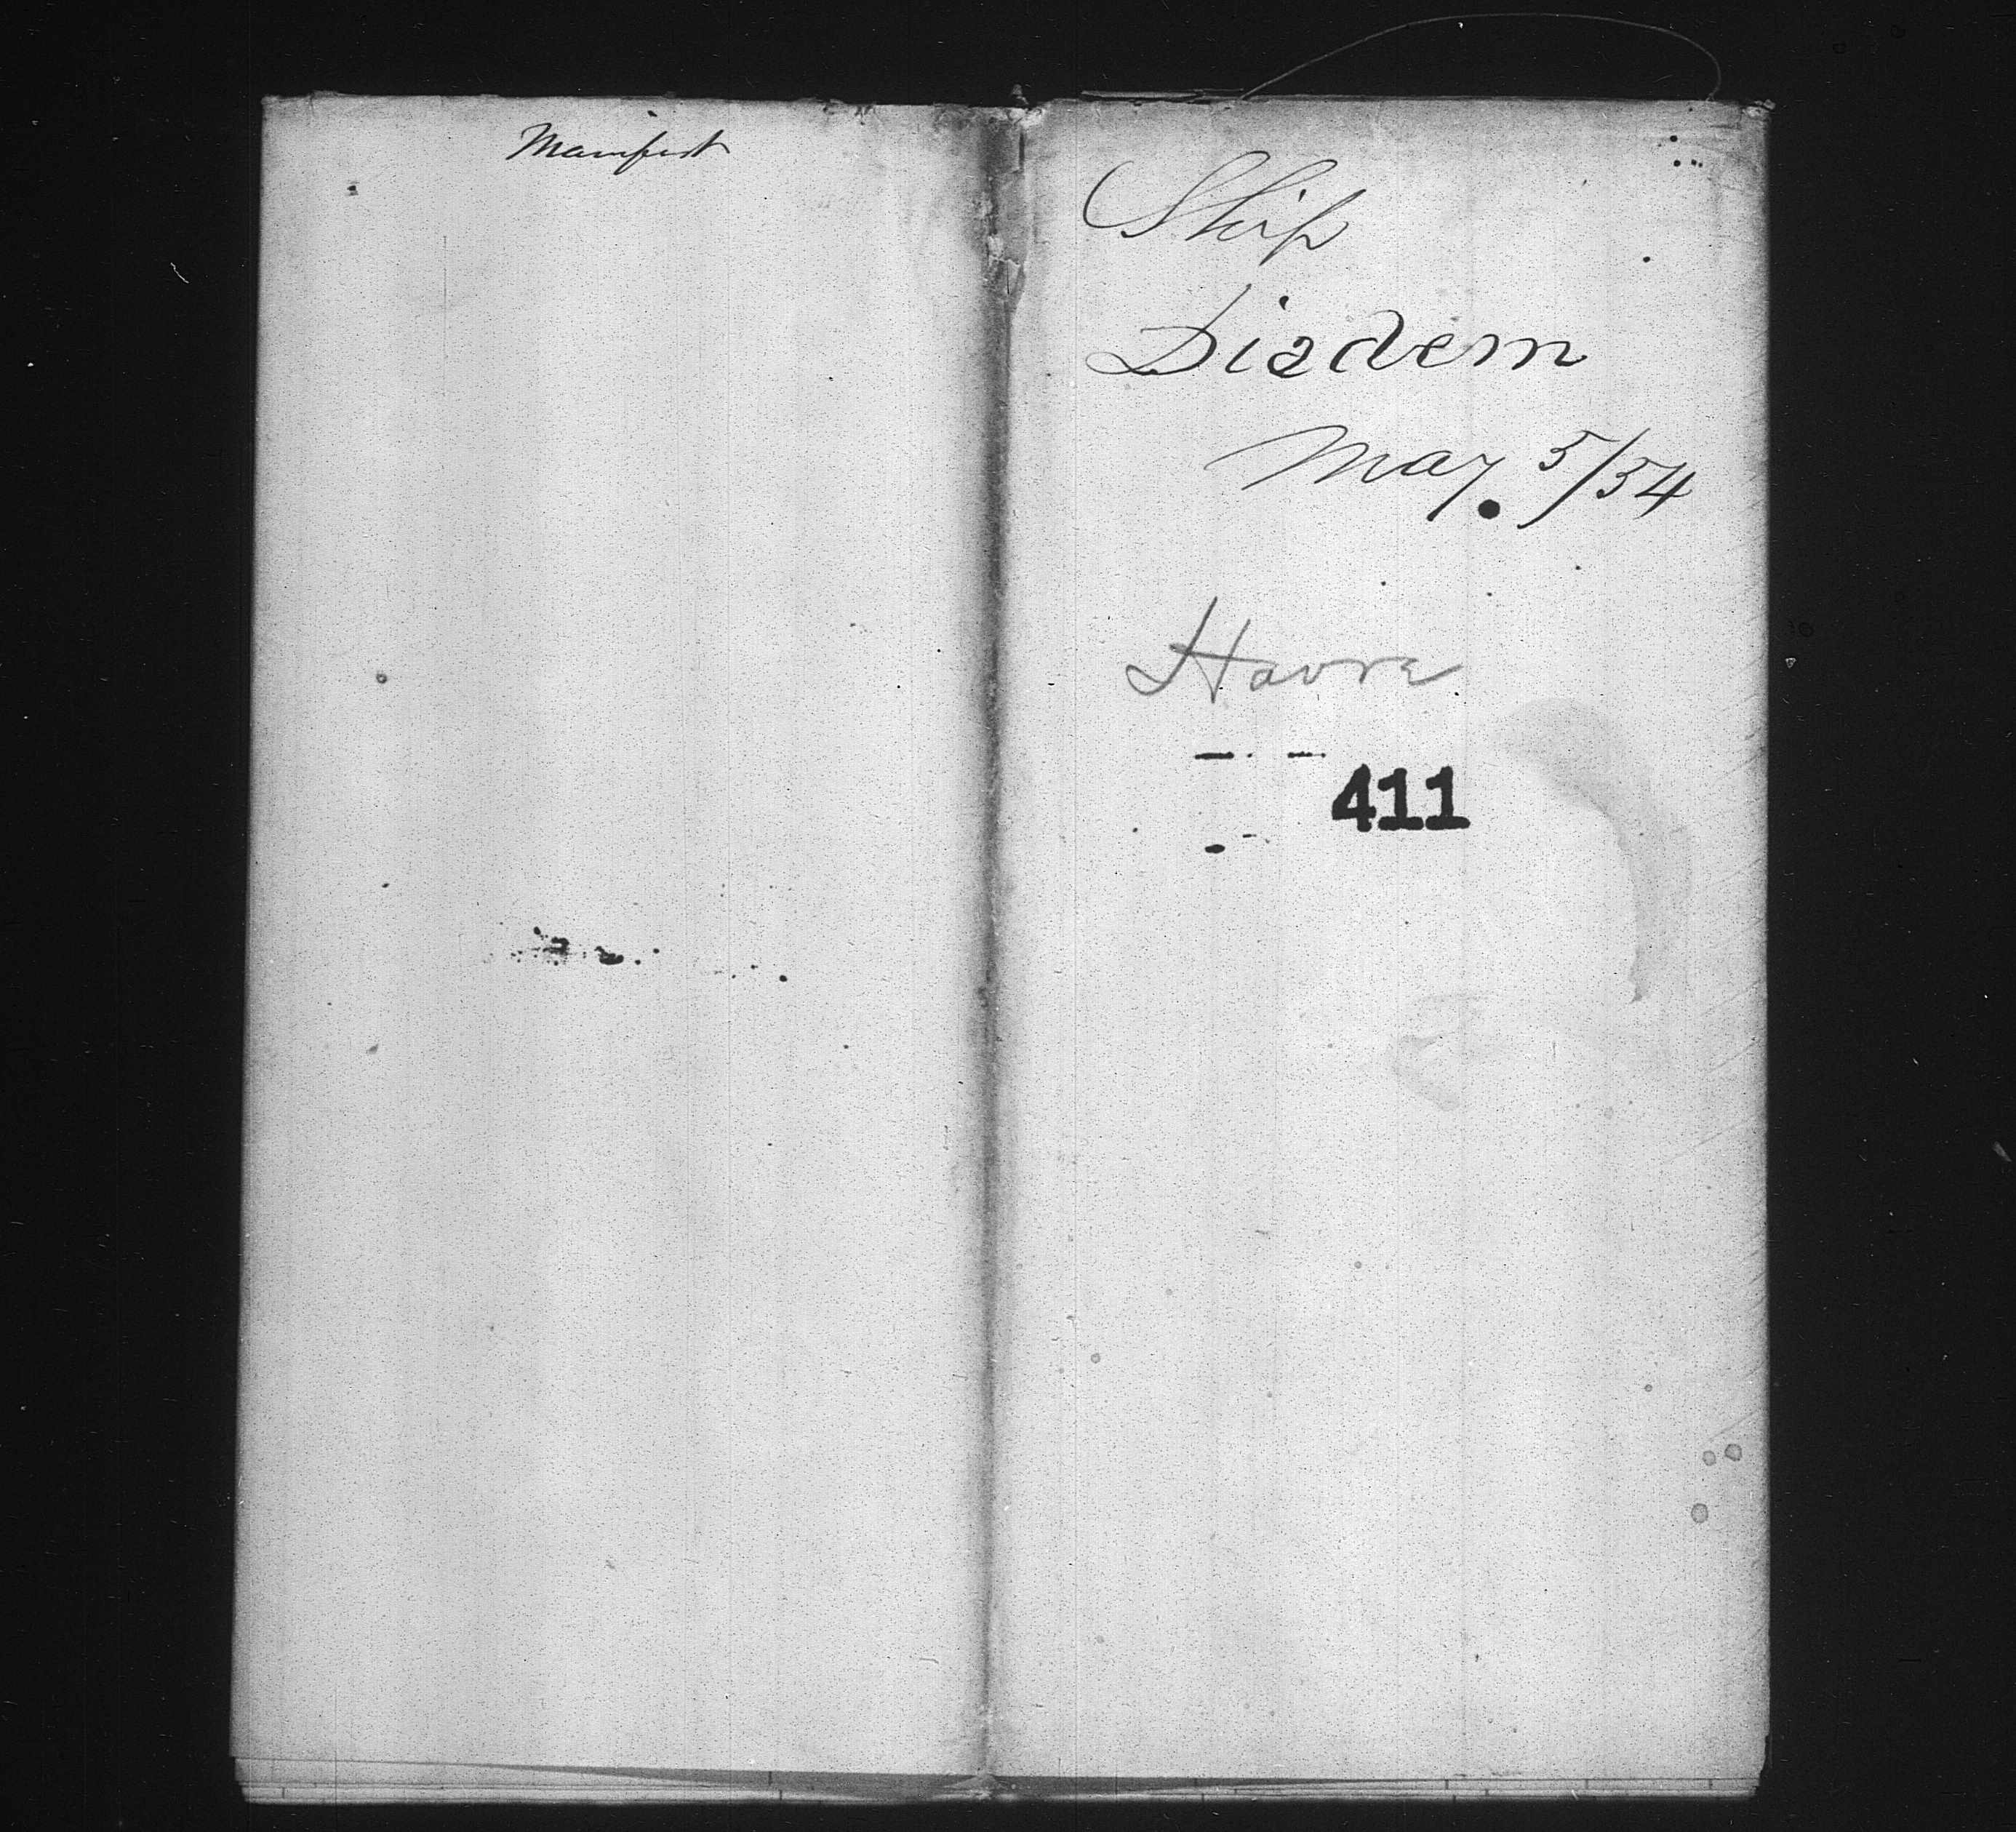 Manifest
Ship
Diadem
May 5/54
Havre
411